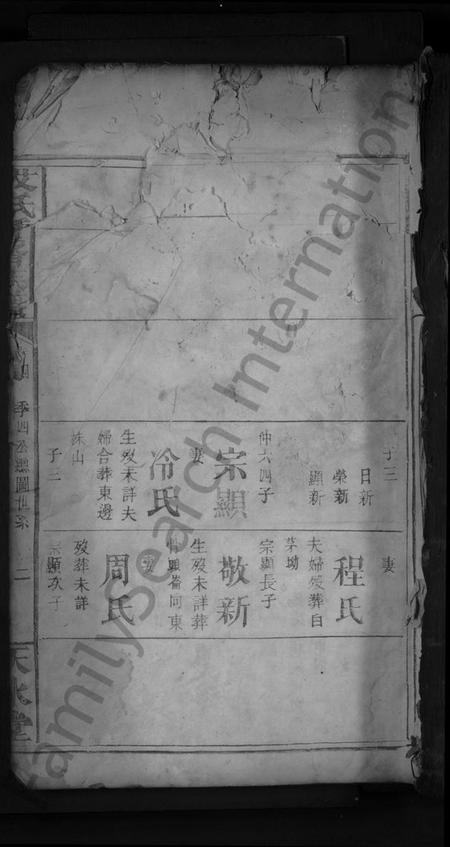 子三
日新
榮新
顯新
仲六四子
宗顯
妻
冷氏
生歿未詳夫
婦合葬東邊
妻
程氏
夫婦歿葬白
茅坳
宗顯長子
敬新
生歿未詳葬
妻
周氏
歿葬未詳
宗顯次子
季四公熙圖世系
二
天水堂
FamilySearch International